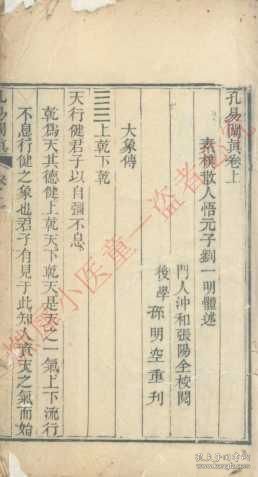 孔易闡真卷上
素樸散人悟元子劉一明體述
門人沖和張陽全校閱
後學孫明空重刊
大象傳
上乾下乾
天行健君子以自彊不息
乾爲天其德健上乾天下乾天是天之一氣上下流行
不息行健之象也君子有見于此知人資天之氣而始
孔易闡真
小医童一盗者